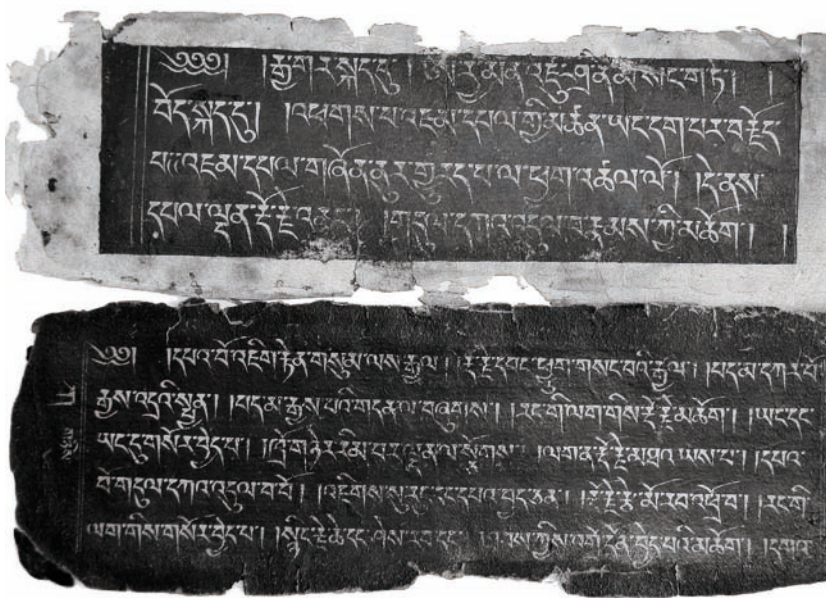 ༄༅། །རྒྱ་གར་སྐད་དུ། ཨརྱ་མན་འཛུ་ཤྲི་ན་མ་སང་ག་ཏི། །
བོད་སྐད་དུ། །འཕགས་པ་འཇམ་དཔལ་གྱི་མཚན་ཡང་དག་པར་བརྗོད་
པ༎འཇམ་དཔལ་གཞོན་ནུར་གྱུརད་པ་ལ་ཕྱག་འཚལ་ལོ། །དེ་ནས་
དཔལ་ལྡན་རྡོ་རྗེ་འཆང༌། །གདུལ་དཀའ་འདུལ་བ་རྣམས་ཀྱི་མཆོག །
༄༅། །དཔའ་བོ་འཇིག་རྟེན་གསུམ་ལས་རྒྱལ། །རྡོ་རྗེ་དབང་ཕྱུག་གསང་བའི་རྒྱལ། །པད་མ་དཀར་པོ་
རྒྱས་འདྲའི་སྤྱན། །པད་མ་རྒྱས་པའི་གདན་ལ་བཞུགས། །རང་གི་ལག་གིས་རྡོ་རྗེ་མཆོག །ཡང་དང་
ཡང་དུ་གསོར་བྱེད་པ། །ཁྲོ་གཉེར་རིམ་པར་ལྡན་ལ་སྩོགས། །ལག་ན་རྡོ་རྗེ་མཐའ་ཡས་པ། །དཔའ་
བོ་གདུལ་དཀའ་འདུལ་བ་པོ། །འཇིགས་སུ་རུང་དང་དཔའ་བྱད་ཅན། །རྡོ་རྗེ་རྩེ་མོ་རབ་འཕྲོ་བ། །རང་གི་
ལག་གིས་གསོར་བྱེད་པ། །སྙིང་རྗེ་ཆེ་དང་ཤེས་རབ་དང༌། །ཐབས་ཀྱིས་འགྲོ་དོན་བྱེད་པའི་མཆོག །དགའ་